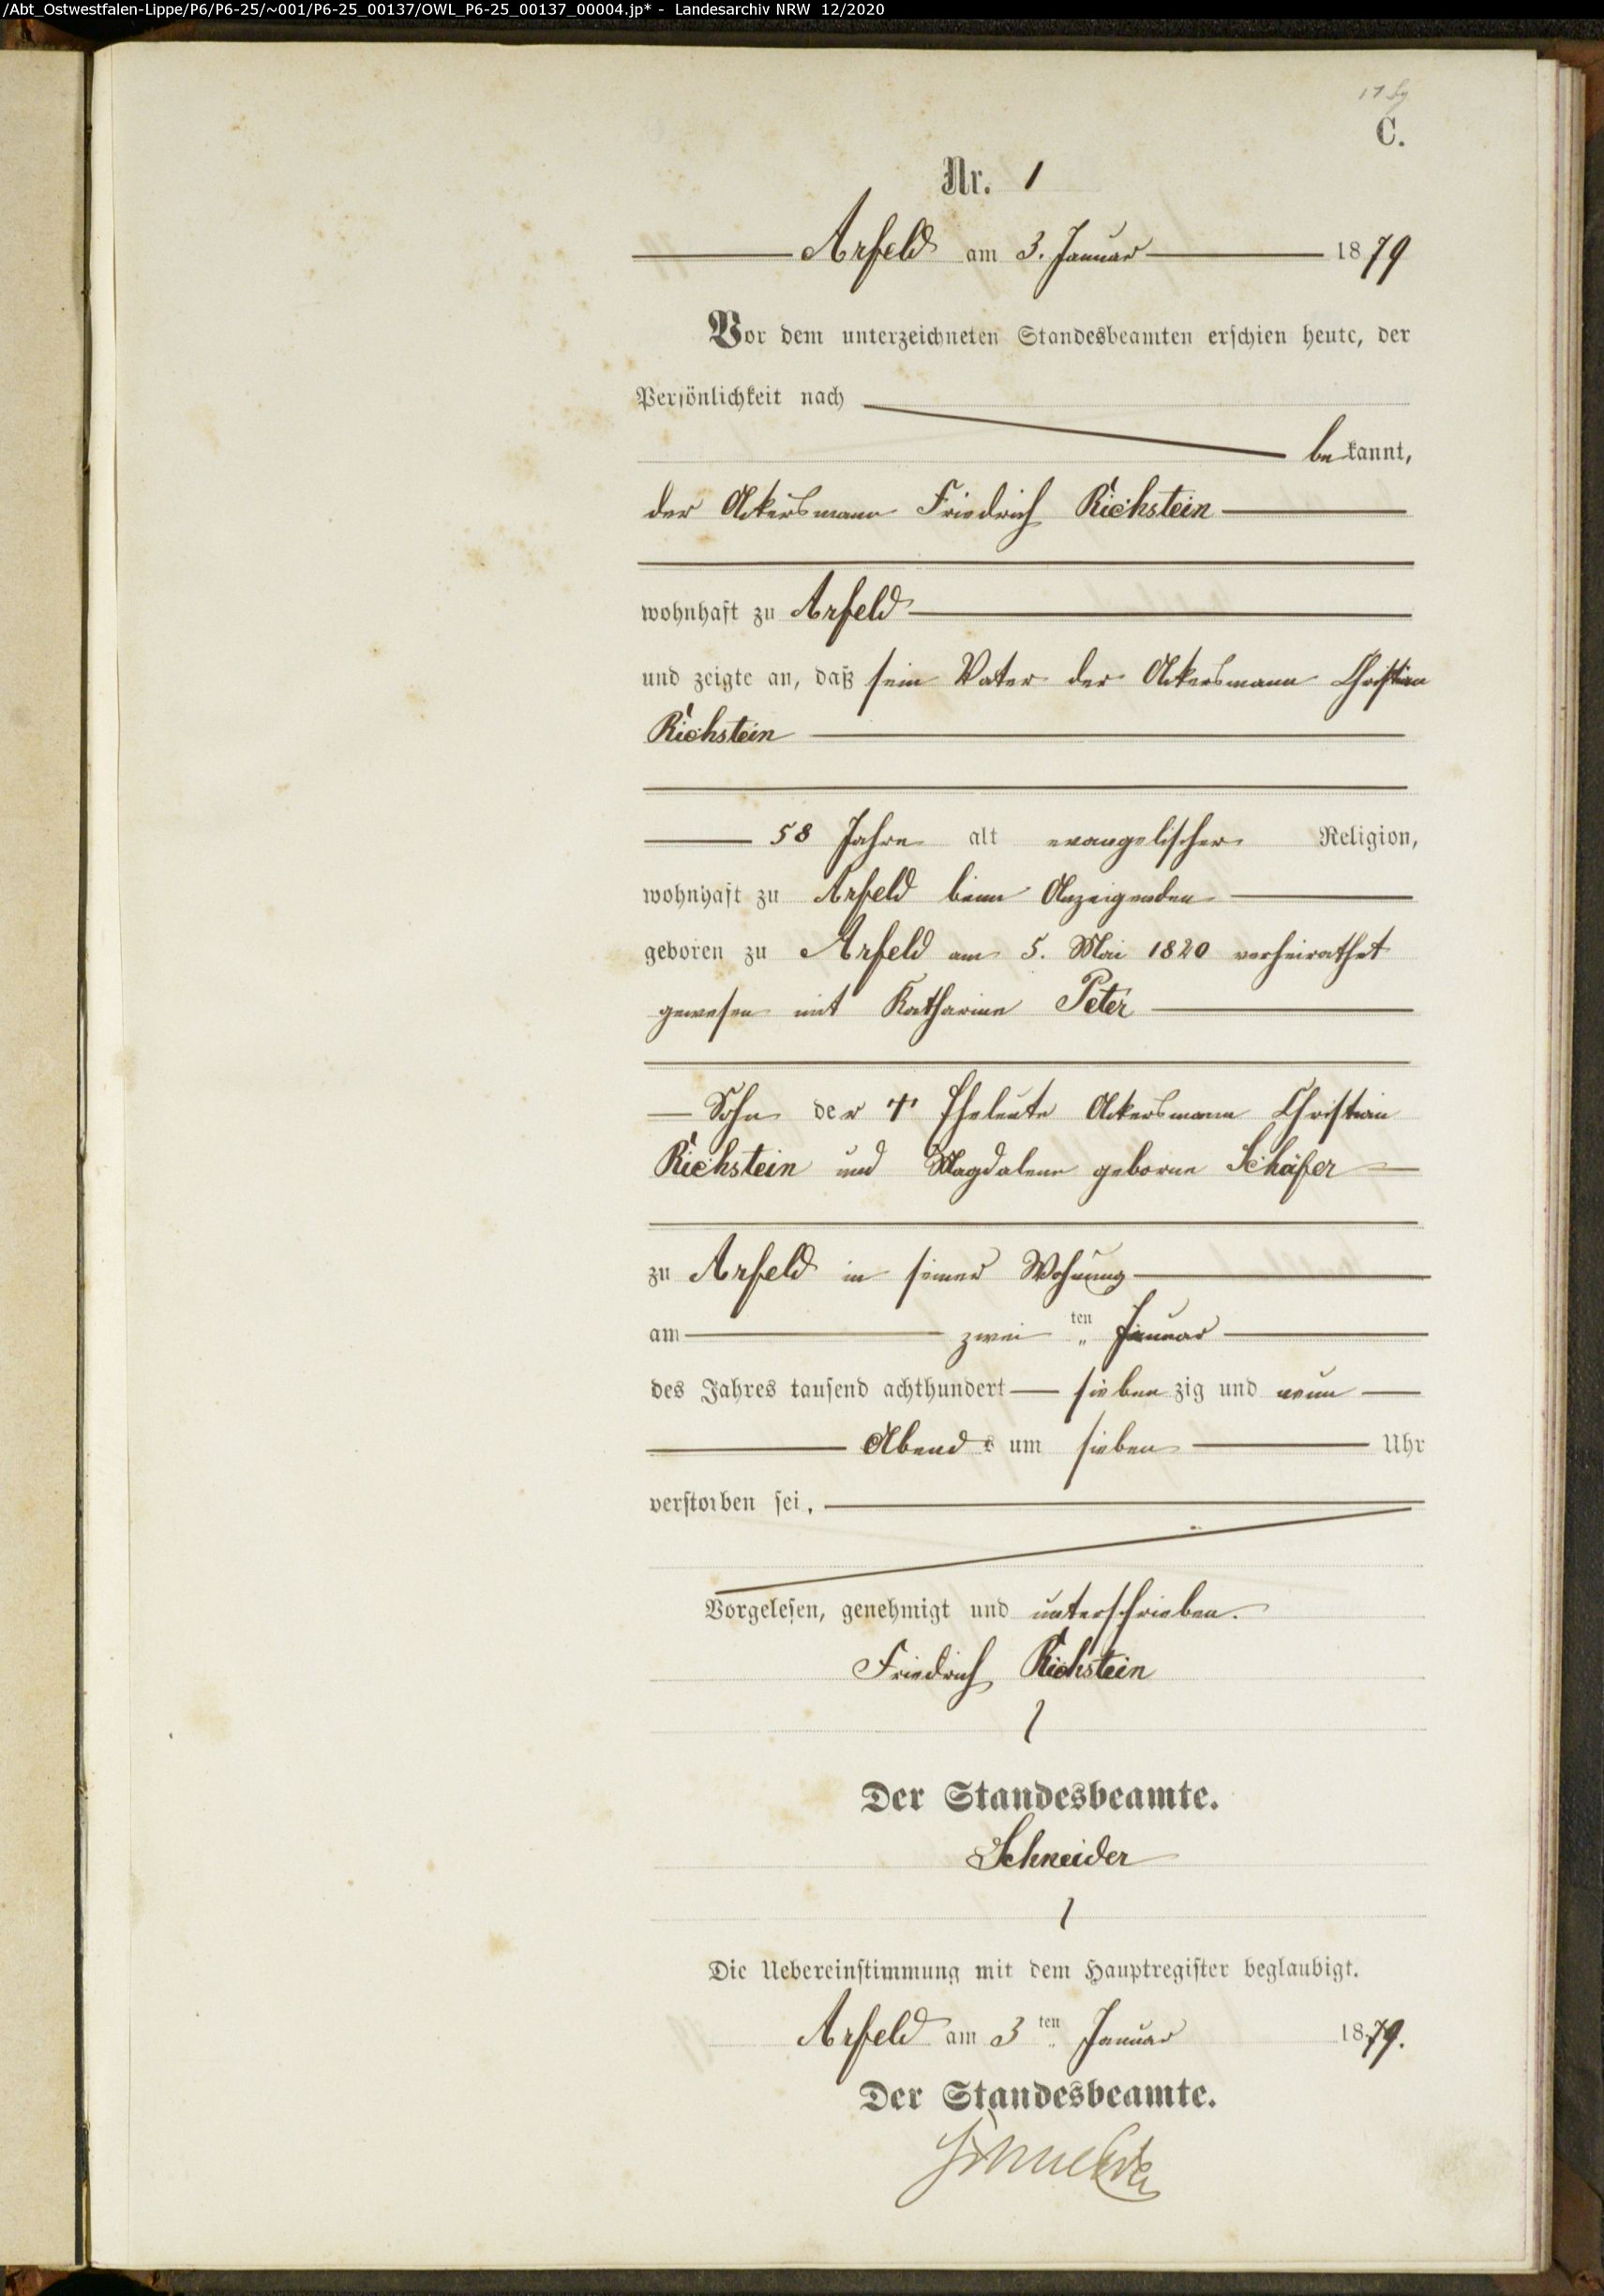 /Abt_Ostwestfalen-Lippe/P6/P6-25/~001/P6-25_00137/OWL_P6-25_00137_00004.jp* - Landesarchiv NRW 12/2020
C.
Nr. 1
Arfeld am 3. Januar 1879
Vor dem unterzeichneten Standesbeamten erschien heute, der
Persönlichkeit nach
bekannt,
der Ackersmann Friedrich Richstein
wohnhaft zu Arfeld
und zeigte an, daß sein Vater der Ackersmann Christian
Richstein
58 Jahre alt evangelischer Religion,
wohnhaft zu Arfeld beim Anzeigenden
geboren zu Arfeld am 5. Mai 1820 verheirathet
gewesen mit Katharine Peter
Sohn der † Eheleute Ackersmann Christian
Richstein und Magdalene geborne Schäfer
zu Arfeld in seiner Wohnung
am zwei ten Januar
des Jahres tausend achthundert siebenzig und neun
Abends um sieben Uhr
verstorben sei.
Vorgelesen, genehmigt und unterschrieben.
Friedrich Richstein
Der Standesbeamte.
Schneider
Die Uebereinstimmung mit dem Hauptregister beglaubigt.
Arfeld am 3ten Januar 1879.
Der Standesbeamte.
Schneider